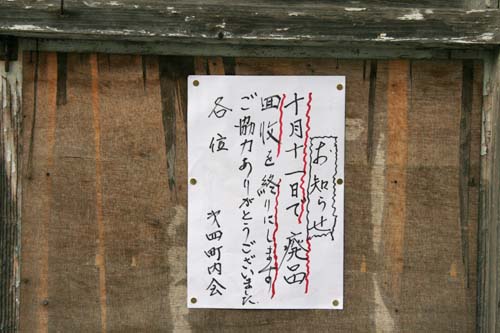 お知らせ
十月十一日で廃品
回収を終りにします
ご協力ありがとうございました
各位
才四町内会